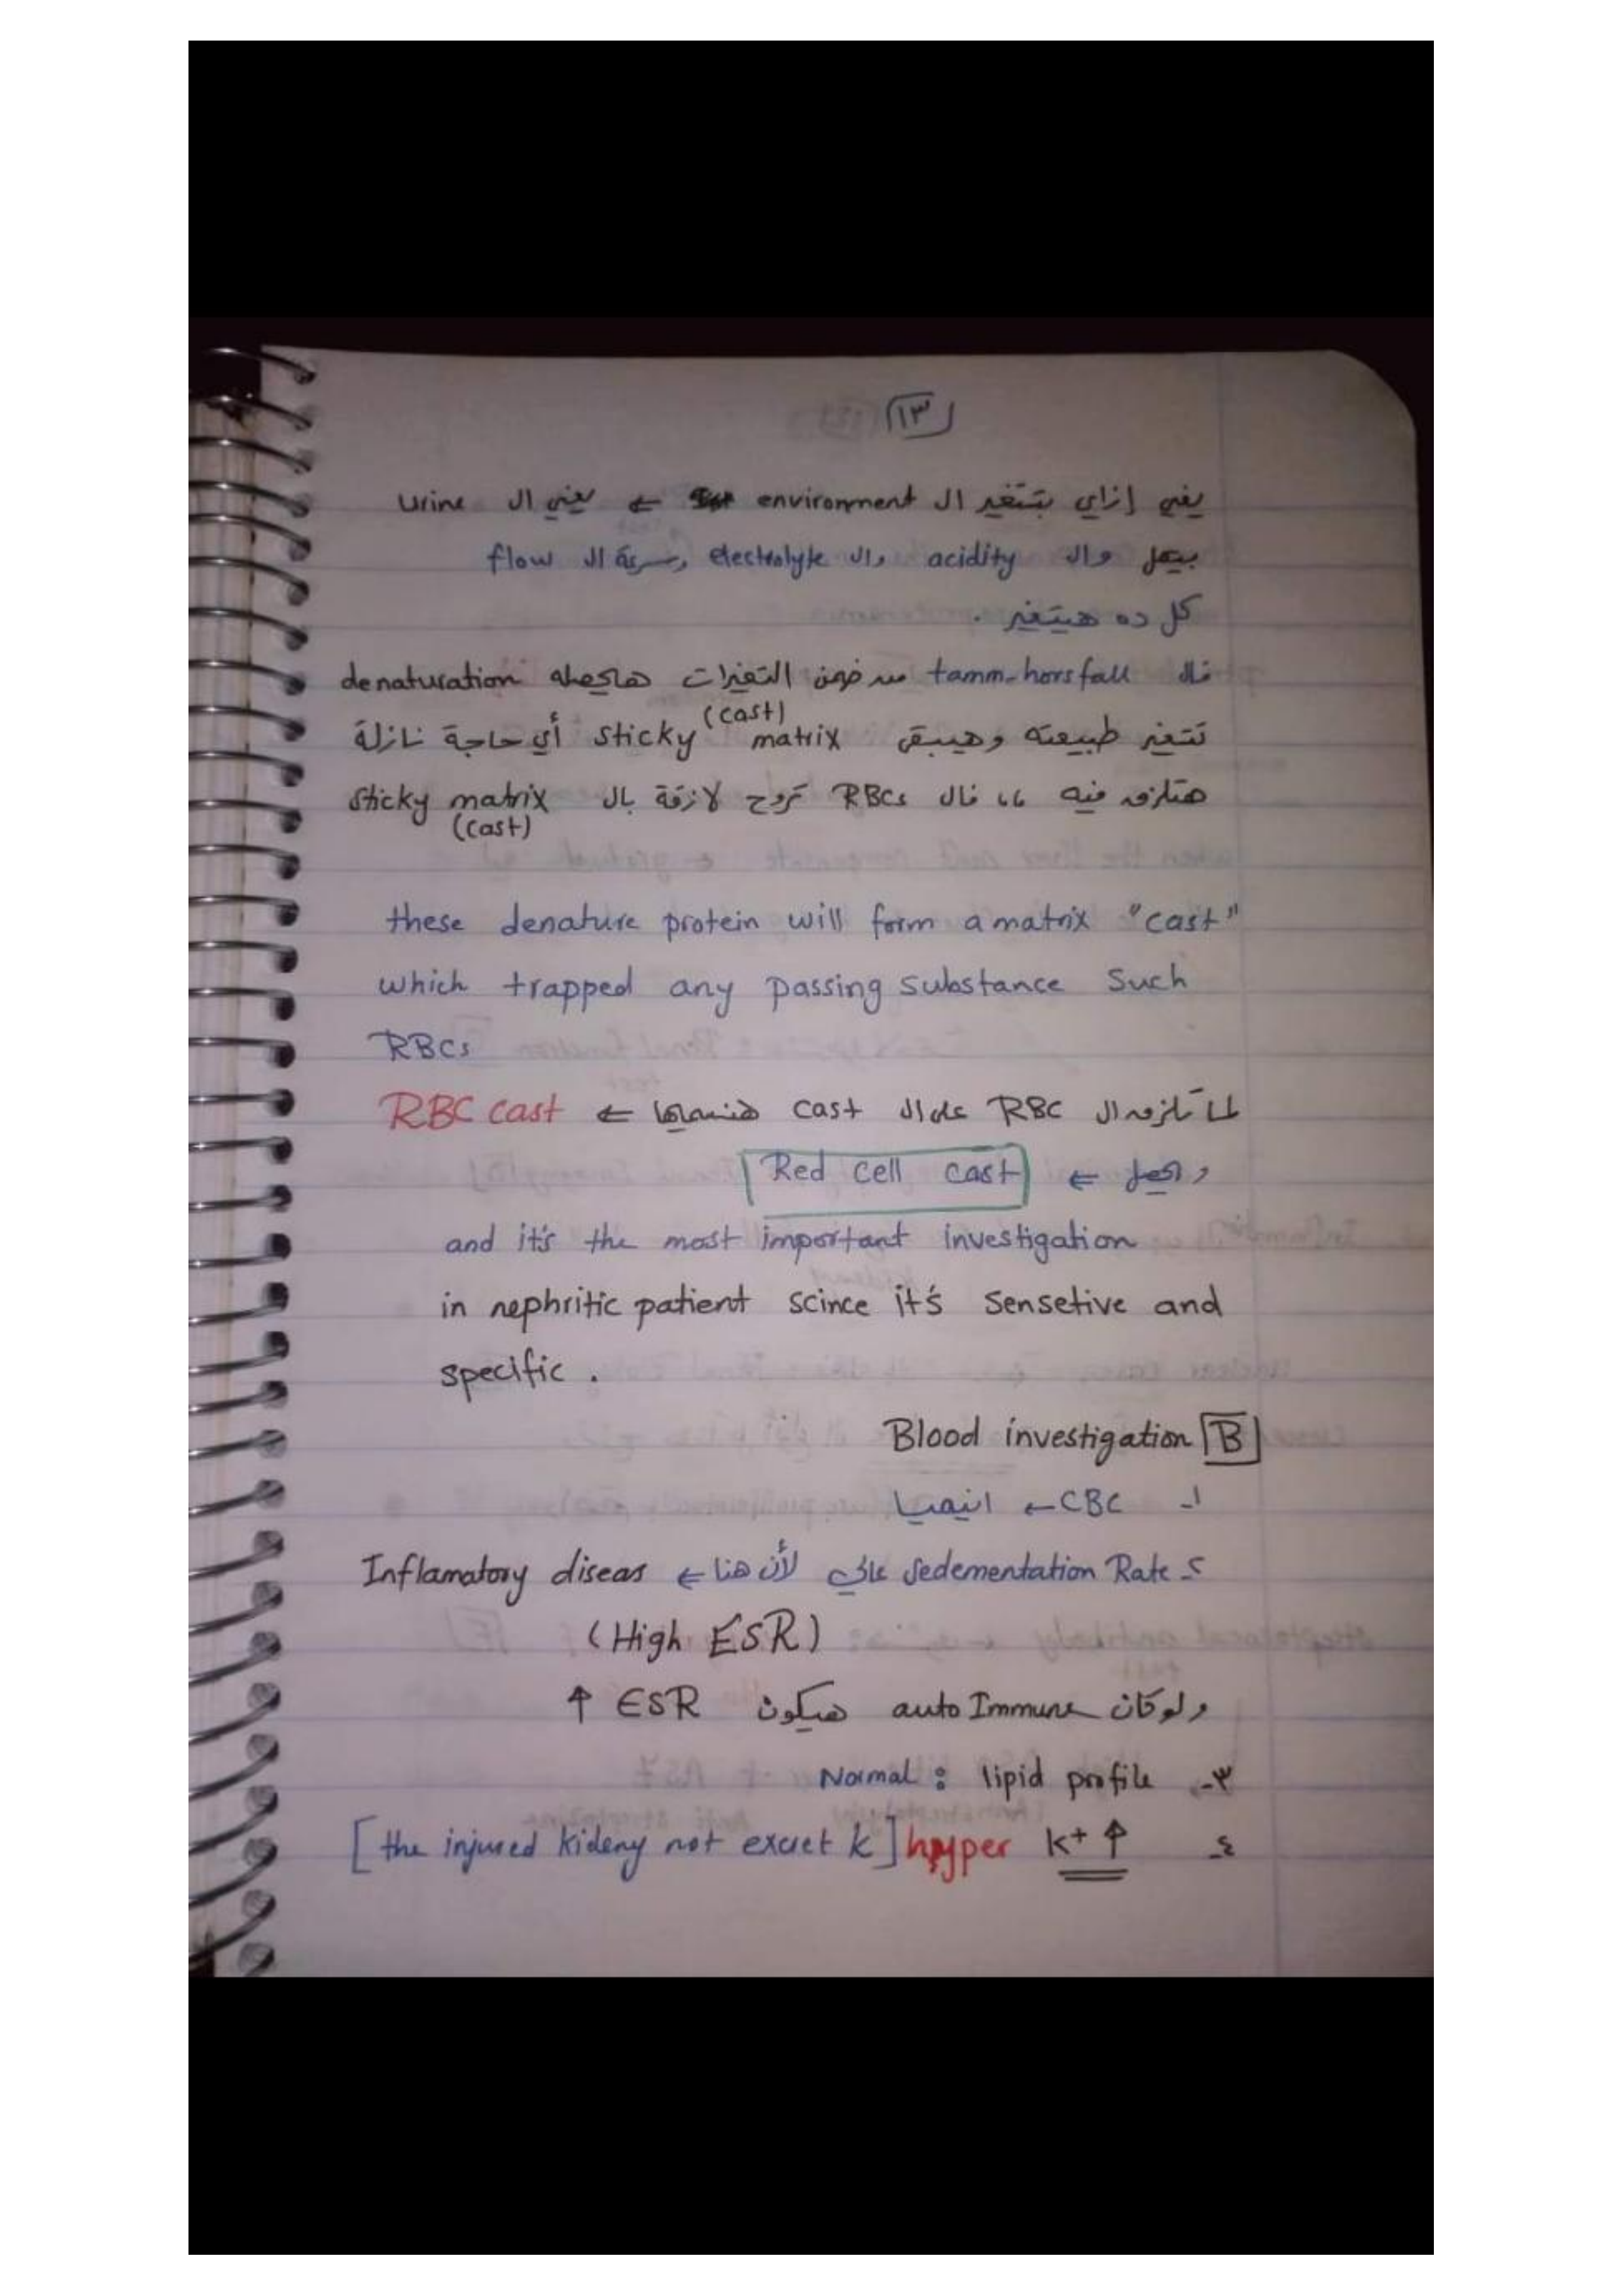 ١٣
يعني إزاي بتتغير ال environment ← يعني ال urine
بيقل وال acidity وال electrolyte وسرعة ال flow
كل ده هيتغير .
فال tamm-horsfall من ضمن التغيرات هايحصله denaturation
تتغير طبيعته وهيبقى sticky matrix (cast) أي حاجة نازلة
هتلزق فيه فال RBCs تروح لازقة بال sticky matrix
(cast)
these denature protein will form a matrix "cast"
which trapped any passing substance Such
RBCs
لما تلزق ال RBC على ال cast هنسميها ← RBC cast
← Red cell cast
and it's the most important investigation
in nephritic patient scince it's sensetive and
specific .
B Blood investigation
١- CBC ← انيميا
٢- Sedementation Rate عالي لأن هنا ← Inflamatory diseas
(High ESR)
ولو كان auto Immune هيكون ESR ↑
٣- lipid profile : Normal
٤- K+ ↑ hyper [the injured kideny not excret k]